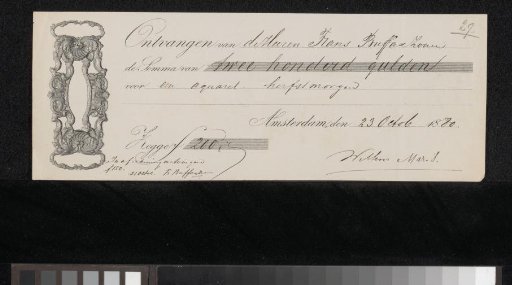 29
Ontvangen van de Heeren Frans Buffa & Zonen
de Somma van twee honderd gulden
voor een aquarel herfstmorgen
Amsterdam, den 23 Octob 1880
Zegge f 200,-
Willem Maris.
f150.